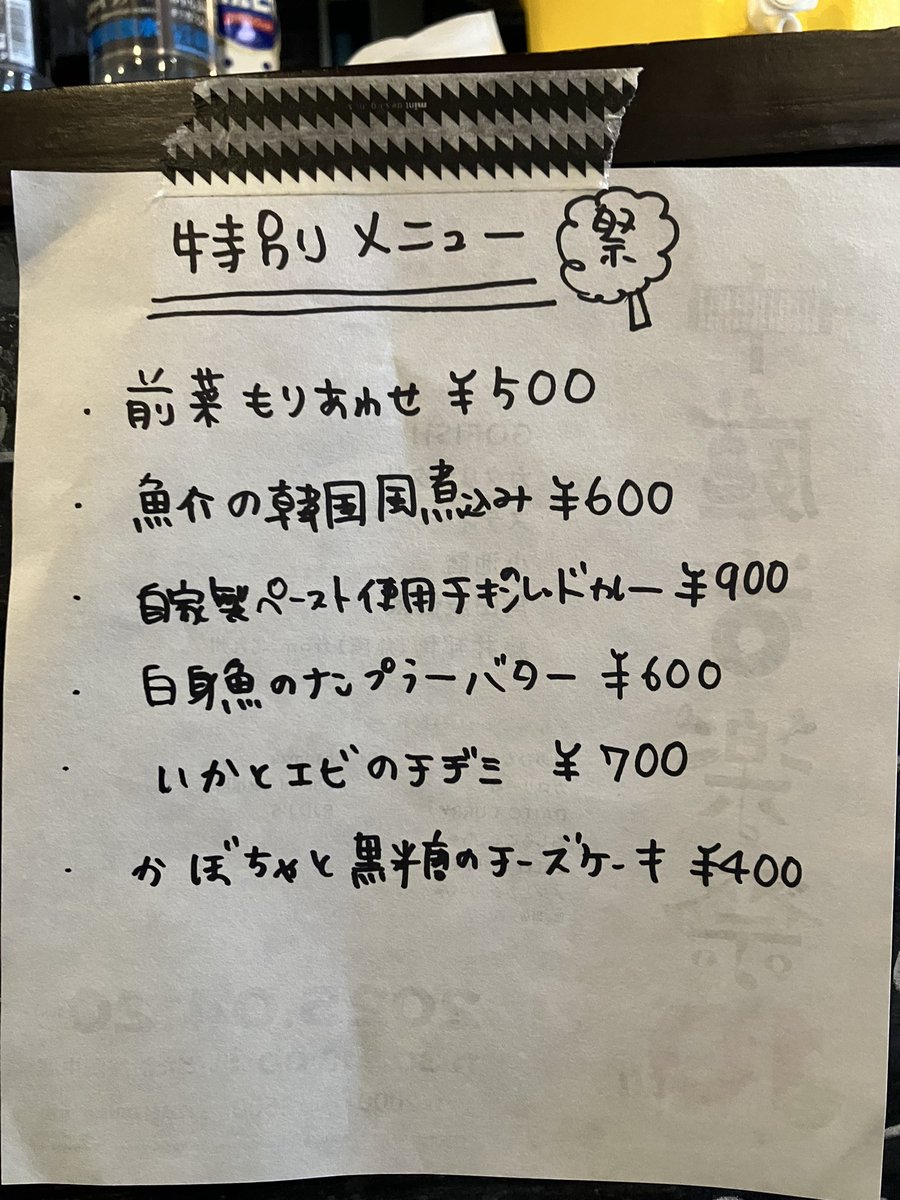 特別メニュー 祭
・前菜もりあわせ ¥500
・魚介の韓国国煮込み ¥600
・自家製ペースト使用チキンレッドカレー ¥900
・白身魚のナンプラーバター ¥600
・いかとエビのチヂミ ¥700
・かぼちゃと黒半唐のチーズケーキ ¥400